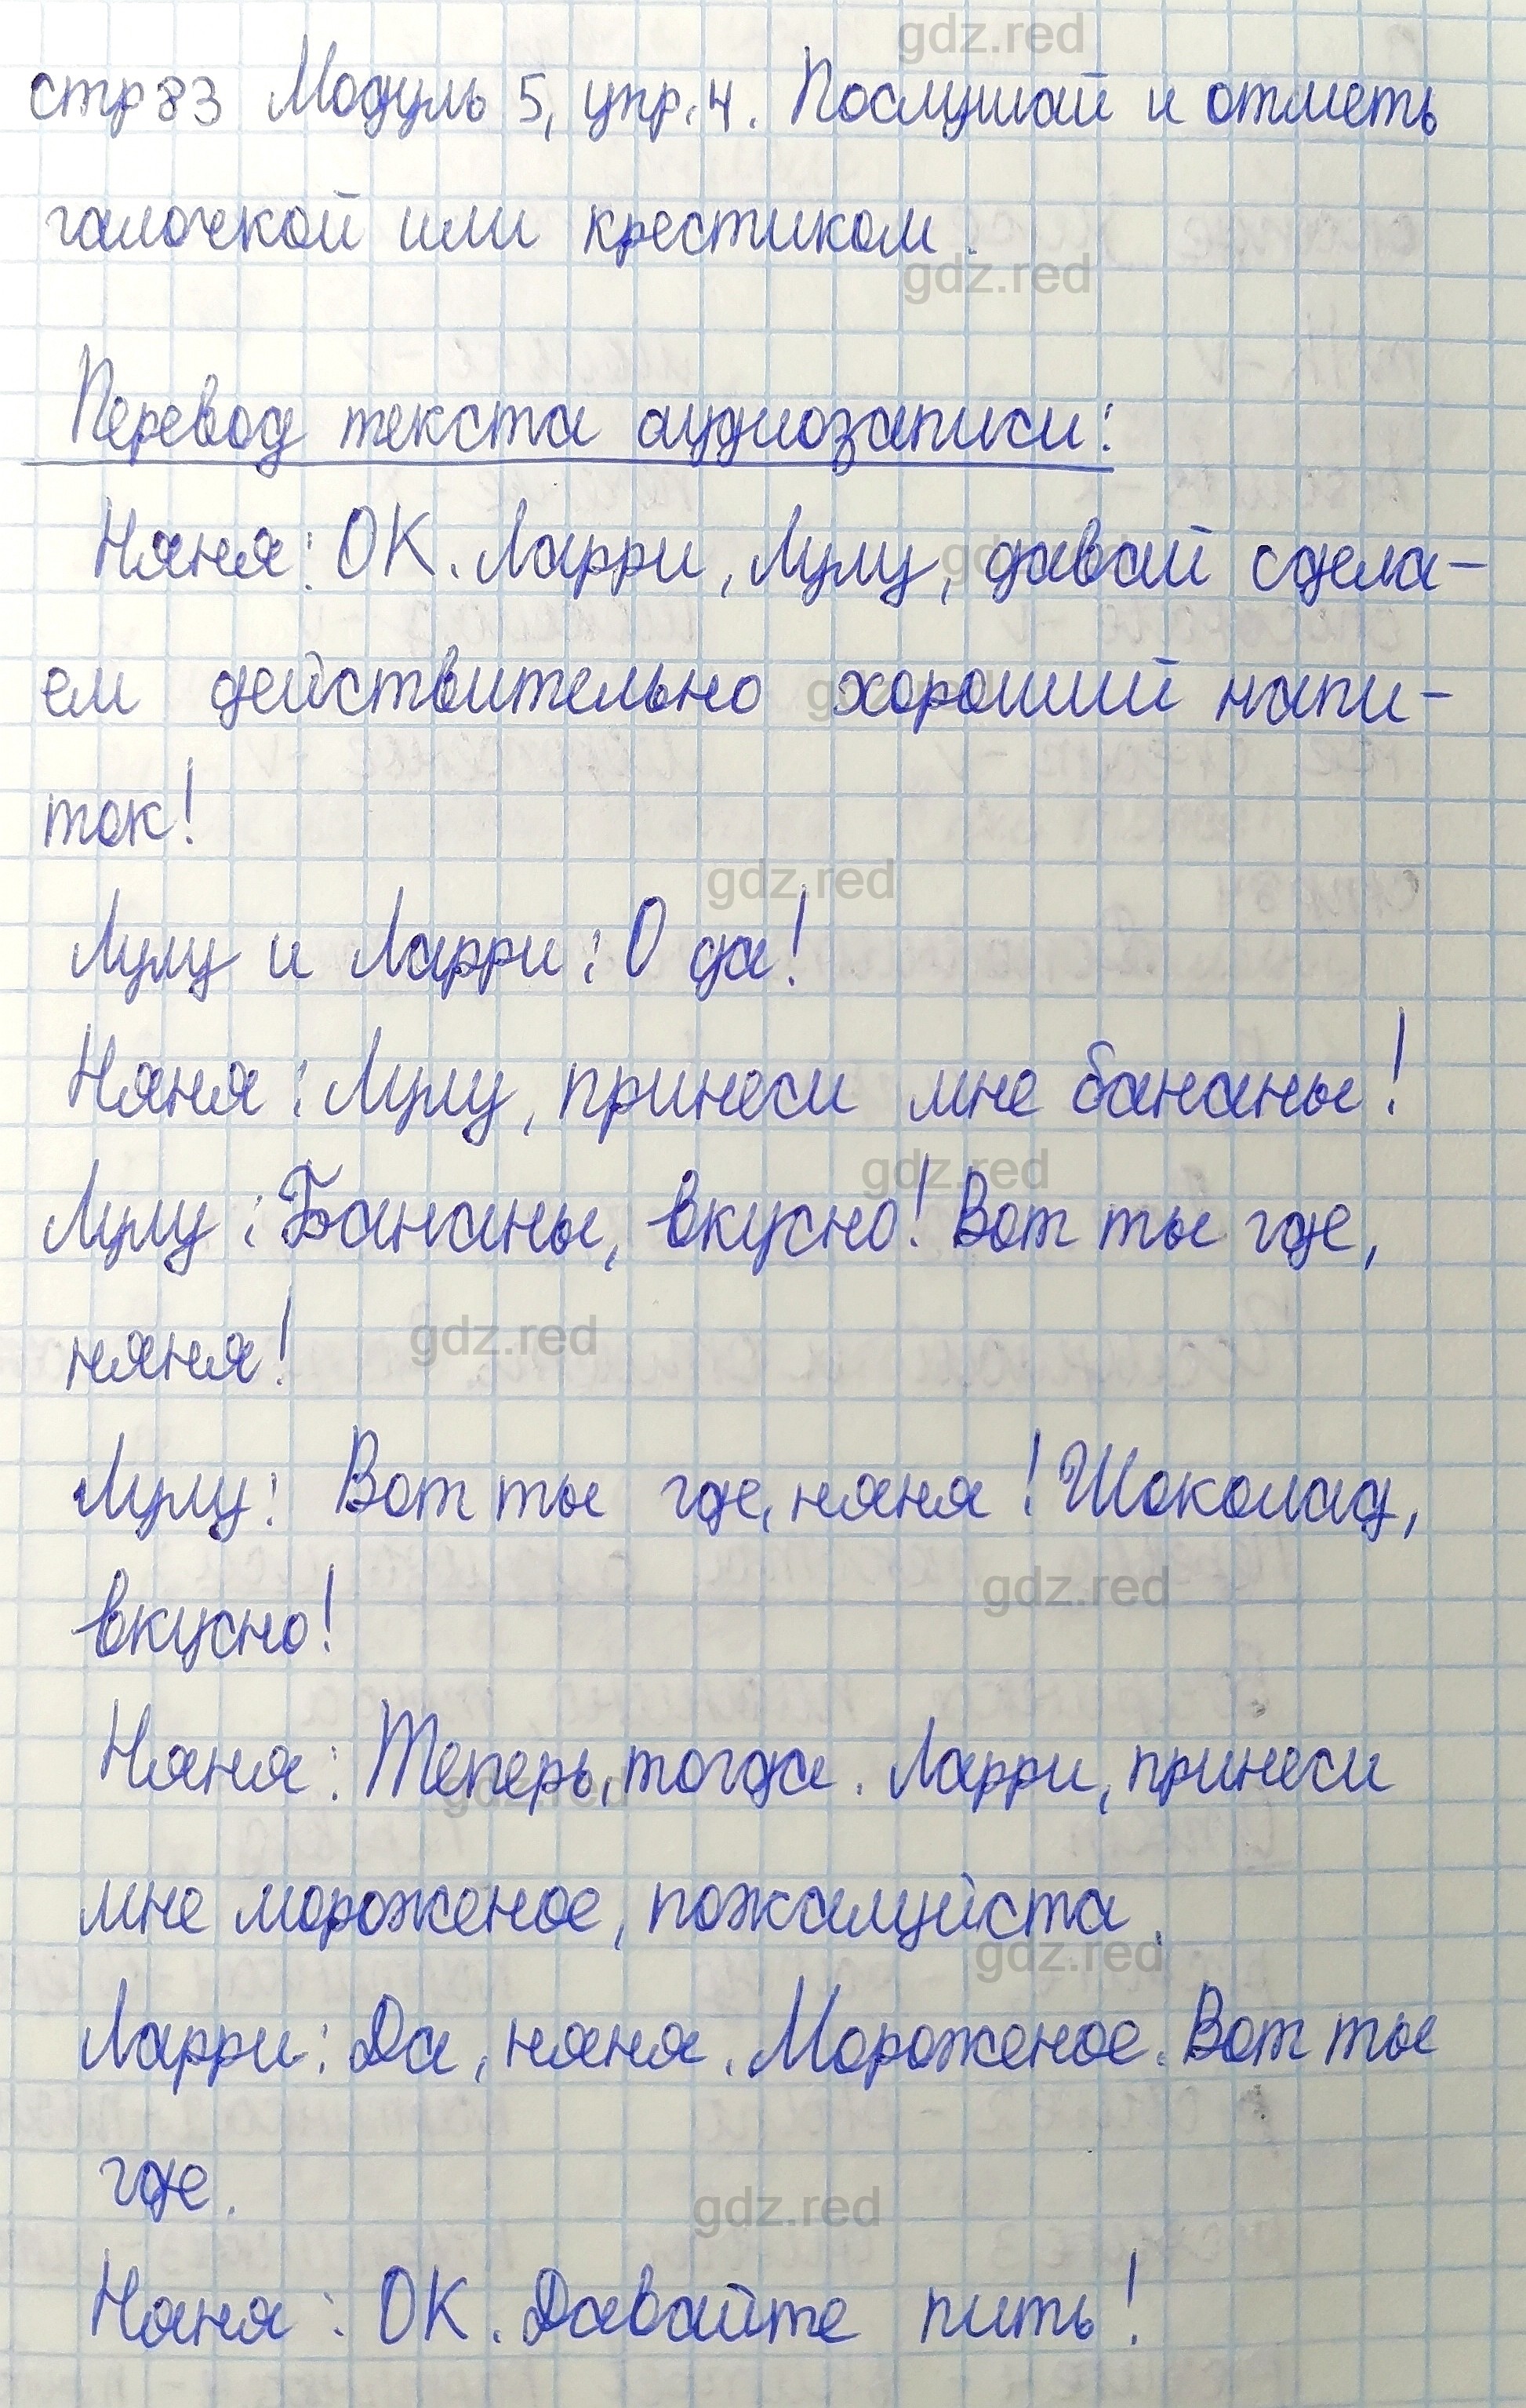 gdz.red
стр 83 Модуль 5, упр. 4. Послушай и отметь
галочкой или крестиком.
gdz.red
Перевод текста аудиозаписи:
Няня: ОК. Ларри, Лулу, давай сдела-
gdz.red
ем действительно хороший напи-
gdz.red
ток!
gdz.red
Лулу и Ларри: О да!
Няня: Лулу, принеси мне бананы!
gdz.red
Лулу: Бананы, вкусно! Вот ты где,
няня!
gdz.red
Лулу: Вот ты где, няня! Шоколад,
gdz.red
вкусно!
Няня: Теперь, тогда. Ларри, принеси
gdz.red
мне мороженое, пожалуйста.
gdz.red
Ларри: Да, няня. Мороженое. Вот ты
где.
gdz.red
Няня: ОК. Давайте пить!